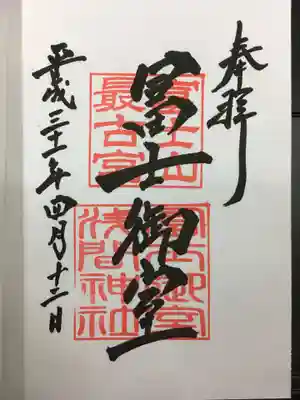 奉拝
冨士山
最古宮
冨士御室
冨士御室
浅間神社
平成三十一年四月十二日